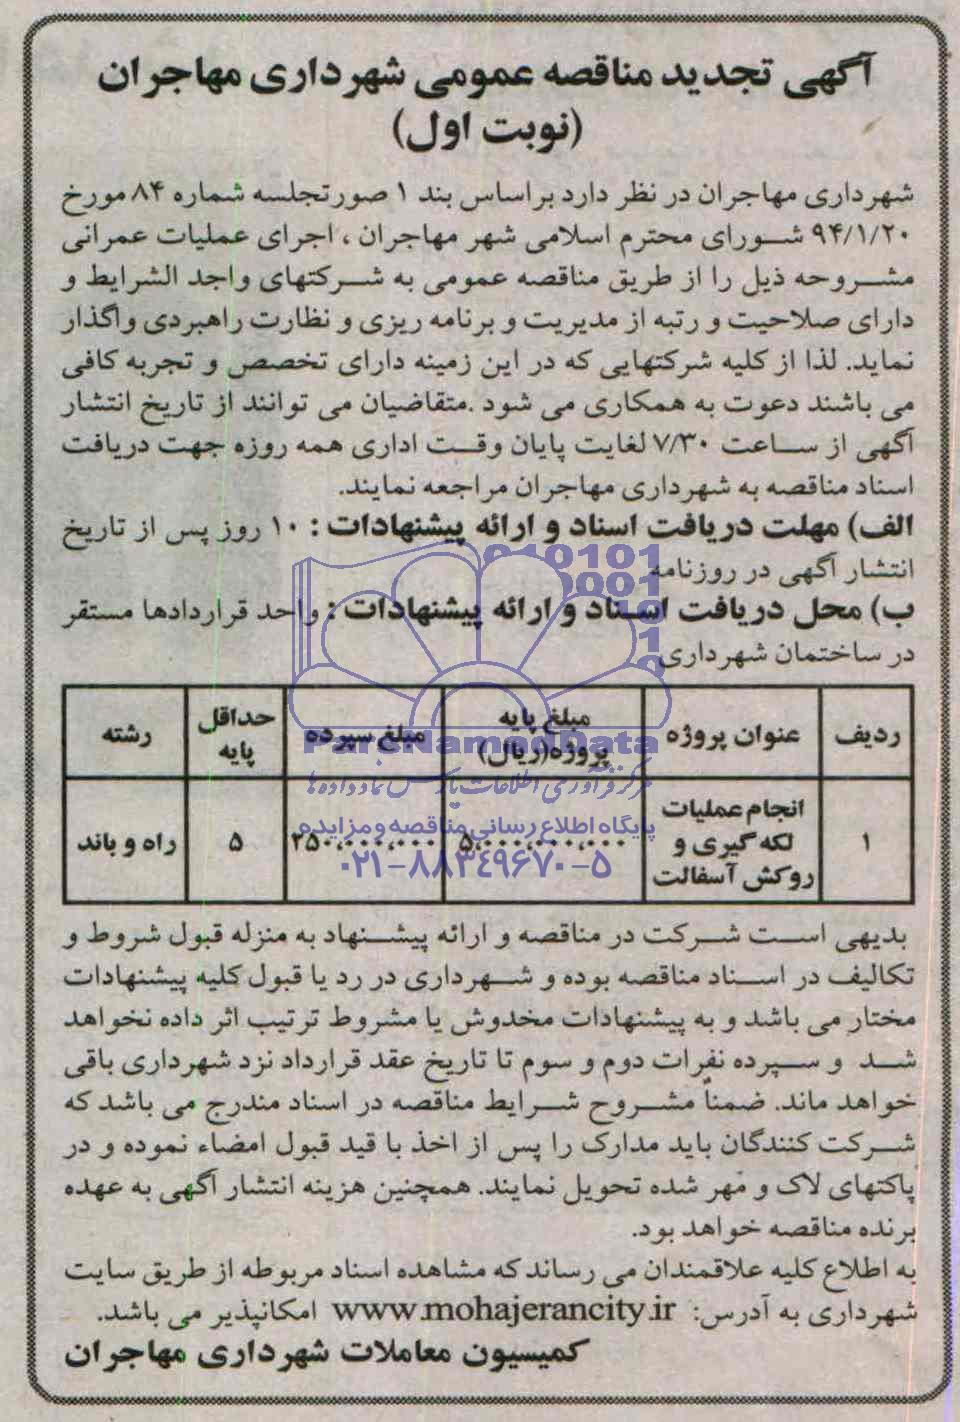 آگهی تجدید مناقصه عمومی شهرداری مهاجران
(نوبت اول)
شهرداری مهاجران در نظر دارد براساس بند ۱ صورتجلسه شماره ۸۴ مورخ
۹۴/۱/۲۰ شورای محترم اسلامی شهر مهاجران ، اجرای عملیات عمرانی
مشروحه ذیل را از طریق مناقصه عمومی به شرکتهای واجد الشرایط و
دارای صلاحیت و رتبه از مدیریت و برنامه ریزی و نظارت راهبردی واگذار
نماید. لذا از کلیه شرکتهایی که در این زمینه دارای تخصص و تجربه کافی
می باشند دعوت به همکاری می شود .متقاضیان می توانند از تاریخ انتشار
آگهی از ساعت ۷/۳۰ لغایت پایان وقت اداری همه روزه جهت دریافت
اسناد مناقصه به شهرداری مهاجران مراجعه نمایند.
الف) مهلت دریافت اسناد و ارائه پیشنهادات : ۱۰ روز پس از تاریخ
انتشار آگهی در روزنامه
ب) محل دریافت اسناد و ارائه پیشنهادات : واحد قراردادها مستقر
در ساختمان شهرداری
ردیف عنوان پروژه مبلغ پایه پروژه(ریال) مبلغ سپرده حداقل پایه رشته
۱ انجام عملیات لکه گیری و روکش آسفالت ۵،۰۰۰،۰۰۰،۰۰۰ ۲۵۰،۰۰۰،۰۰۰ ۵ راه و باند
ParsNamadData
مرکز فرآوری اطلاعات پارس نماد داده ها
پایگاه اطلاع رسانی مناقصه و مزایده
۰۲۱-۸۸۳۴۹۶۷۰-۵
بدیهی است شرکت در مناقصه و ارائه پیشنهاد به منزله قبول شروط و
تکالیف در اسناد مناقصه بوده و شهرداری در رد یا قبول کلیه پیشنهادات
مختار می باشد و به پیشنهادات مخدوش یا مشروط ترتیب اثر داده نخواهد
شد و سپرده نفرات دوم و سوم تا تاریخ عقد قرارداد نزد شهرداری باقی
خواهد ماند. ضمناً مشروح شرایط مناقصه در اسناد مندرج می باشد که
شرکت کنندگان باید مدارک را پس از اخذ با قید قبول امضاء نموده و در
پاکتهای لاک و مهر شده تحویل نمایند. همچنین هزینه انتشار آگهی به عهده
برنده مناقصه خواهد بود.
به اطلاع کلیه علاقمندان می رساند که مشاهده اسناد مربوطه از طریق سایت
شهرداری به آدرس: www.mohajerancity.ir امکانپذیر می باشد.
کمیسیون معاملات شهرداری مهاجران